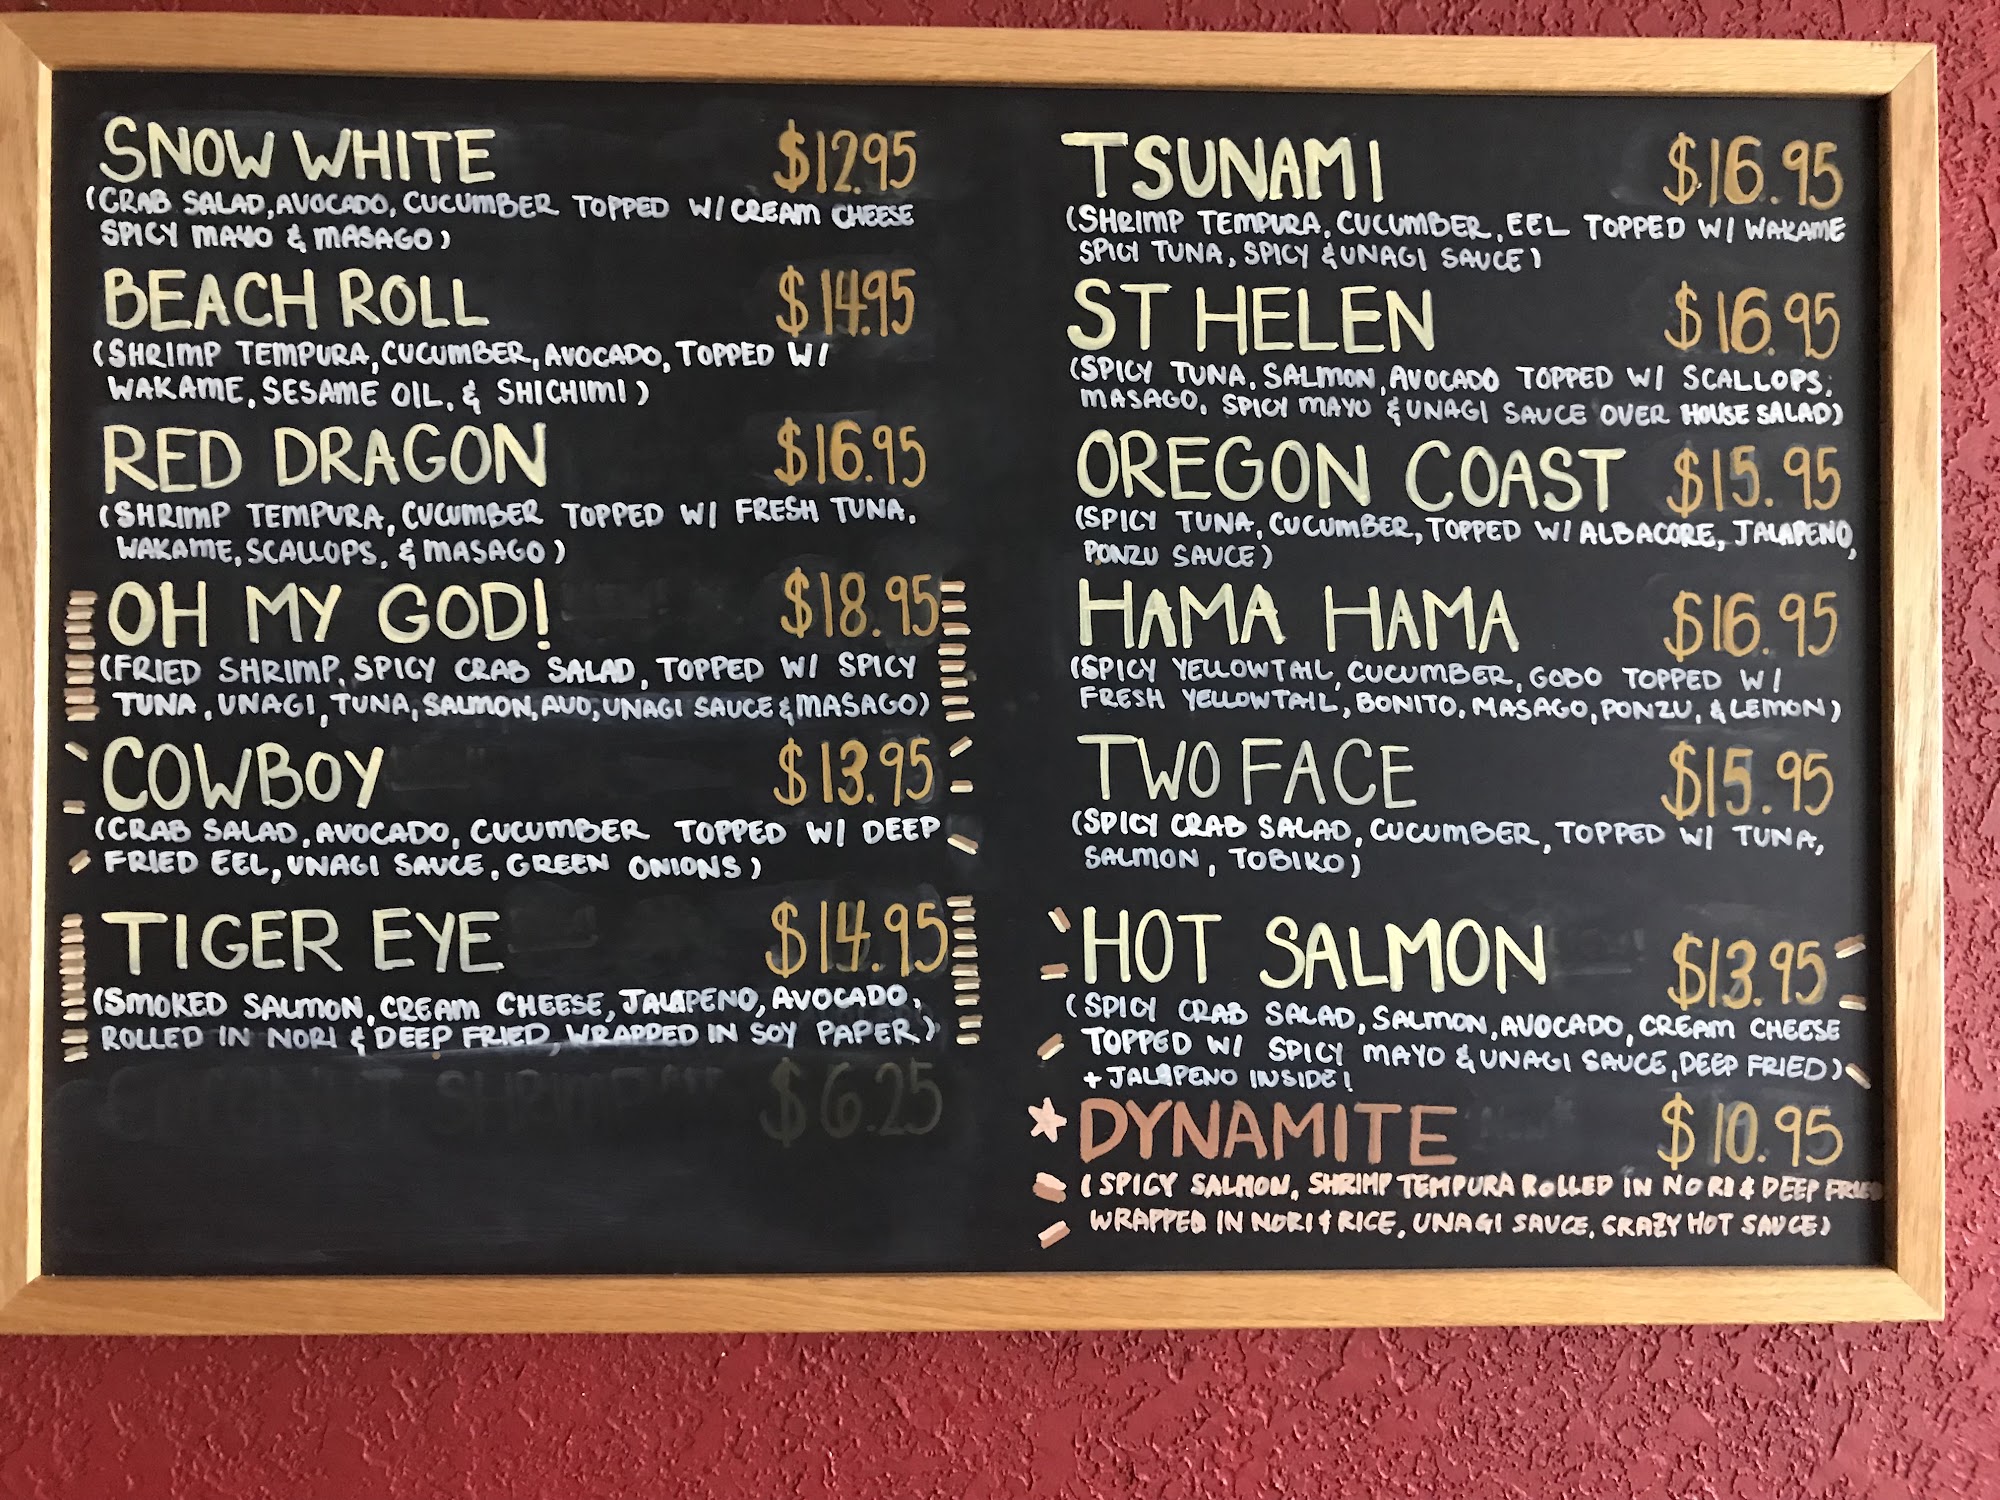 SNOW WHITE $12.95
(CRAB SALAD, AVOCADO, CUCUMBER TOPPED W/ CREAM CHEESE
SPICY MAYO & MASAGO)
BEACH ROLL $14.95
(SHRIMP TEMPURA, CUCUMBER, AVOCADO, TOPPED W/
WAKAME, SESAME OIL, & SHICHIMI)
RED DRAGON $16.95
(SHRIMP TEMPURA, CUCUMBER TOPPED W/ FRESH TUNA,
WAKAME, SCALLOPS, & MASAGO)
OH MY GOD! $18.95
(FRIED SHRIMP, SPICY CRAB SALAD, TOPPED W/ SPICY
TUNA, UNAGI, TUNA, SALMON, AVO, UNAGI SAUCE & MASAGO)
COWBOY $13.95
(CRAB SALAD, AVOCADO, CUCUMBER TOPPED W/ DEEP
FRIED EEL, UNAGI SAUCE, GREEN ONIONS)
TIGER EYE $14.95
(SMOKED SALMON, CREAM CHEESE, JALAPENO, AVOCADO,
ROLLED IN NORI & DEEP FRIED, WRAPPED IN SOY PAPER)
COCONUT SHRIMP $6.25
TSUNAMI $16.95
(SHRIMP TEMPURA, CUCUMBER, EEL TOPPED W/ WAKAME
SPICY TUNA, SPICY & UNAGI SAUCE)
ST HELEN $16.95
(SPICY TUNA, SALMON, AVOCADO TOPPED W/ SCALLOPS,
MASAGO, SPICY MAYO & UNAGI SAUCE OVER HOUSE SALAD)
OREGON COAST $15.95
(SPICY TUNA, CUCUMBER, TOPPED W/ ALBACORE, JALAPENO,
PONZU SAUCE)
HAMA HAMA $16.95
(SPICY YELLOWTAIL, CUCUMBER, GOBO TOPPED W/
FRESH YELLOWTAIL, BONITO, MASAGO, PONZU, & LEMON)
TWO FACE $15.95
(SPICY CRAB SALAD, CUCUMBER, TOPPED W/ TUNA,
SALMON, TOBIKO)
HOT SALMON $13.95
(SPICY CRAB SALAD, SALMON, AVOCADO, CREAM CHEESE
TOPPED W/ SPICY MAYO & UNAGI SAUCE, DEEP FRIED)
+ JALAPENO INSIDE!
DYNAMITE $10.95
(SPICY SALMON, SHRIMP TEMPURA ROLLED IN NORI & DEEP FRIED
WRAPPED IN NORI & RICE, UNAGI SAUCE, CRAZY HOT SAUCE)